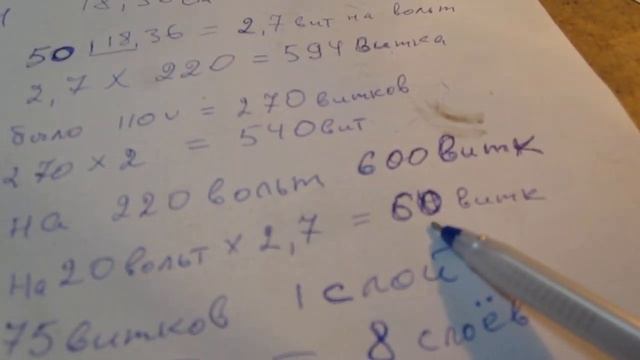 18,36 см
50 | 18,36 = 2,7 вит на вольт
2,7 х 220 = 594 витка
было 110v = 270 витков
270 х 2 = 540 вит
на 220 вольт 600 витк
на 20 вольт х 2,7 = 60 витк
75 витков 1 слой
= 8 слоёв